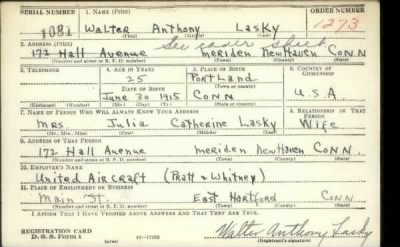 SERIAL NUMBER 1. NAME (Print) ORDER NUMBER
1081 Walter Anthony Lasky 1273
(First) (Middle) (Last)
2. ADDRESS (Print) See cover sheet
172 Hall Avenue Meriden New Haven Conn
(Number and street or R. F. D. number) (Town) (County) (State)
3. TELEPHONE 4. AGE IN YEARS 5. PLACE OF BIRTH 6. COUNTRY OF CITIZENSHIP
25 Portland
(Town or county)
DATE OF BIRTH
June 30 1915 Conn U.S.A.
(Exchange) (Number) (Mo.) (Day) (Yr.) (State or country)
7. NAME OF PERSON WHO WILL ALWAYS KNOW YOUR ADDRESS 8. RELATIONSHIP OF THAT PERSON
Mrs Julia Catherine Lasky Wife
(Mr., Mrs., Miss) (First) (Middle) (Last)
9. ADDRESS OF THAT PERSON
172 Hall Avenue Meriden New Haven Conn.
(Number and street or R. F. D. number) (Town) (County) (State)
10. EMPLOYER'S NAME
United Aircraft (Pratt & Whitney)
11. PLACE OF EMPLOYMENT OR BUSINESS
Main St. East Hartford Conn
(Number and street or R. F. D. number) (Town) (County) (State)
I AFFIRM THAT I HAVE VERIFIED ABOVE ANSWERS AND THAT THEY ARE TRUE.
REGISTRATION CARD
D. S. S. Form 1 Walter Anthony Lasky
(over) (Registrant's signature)